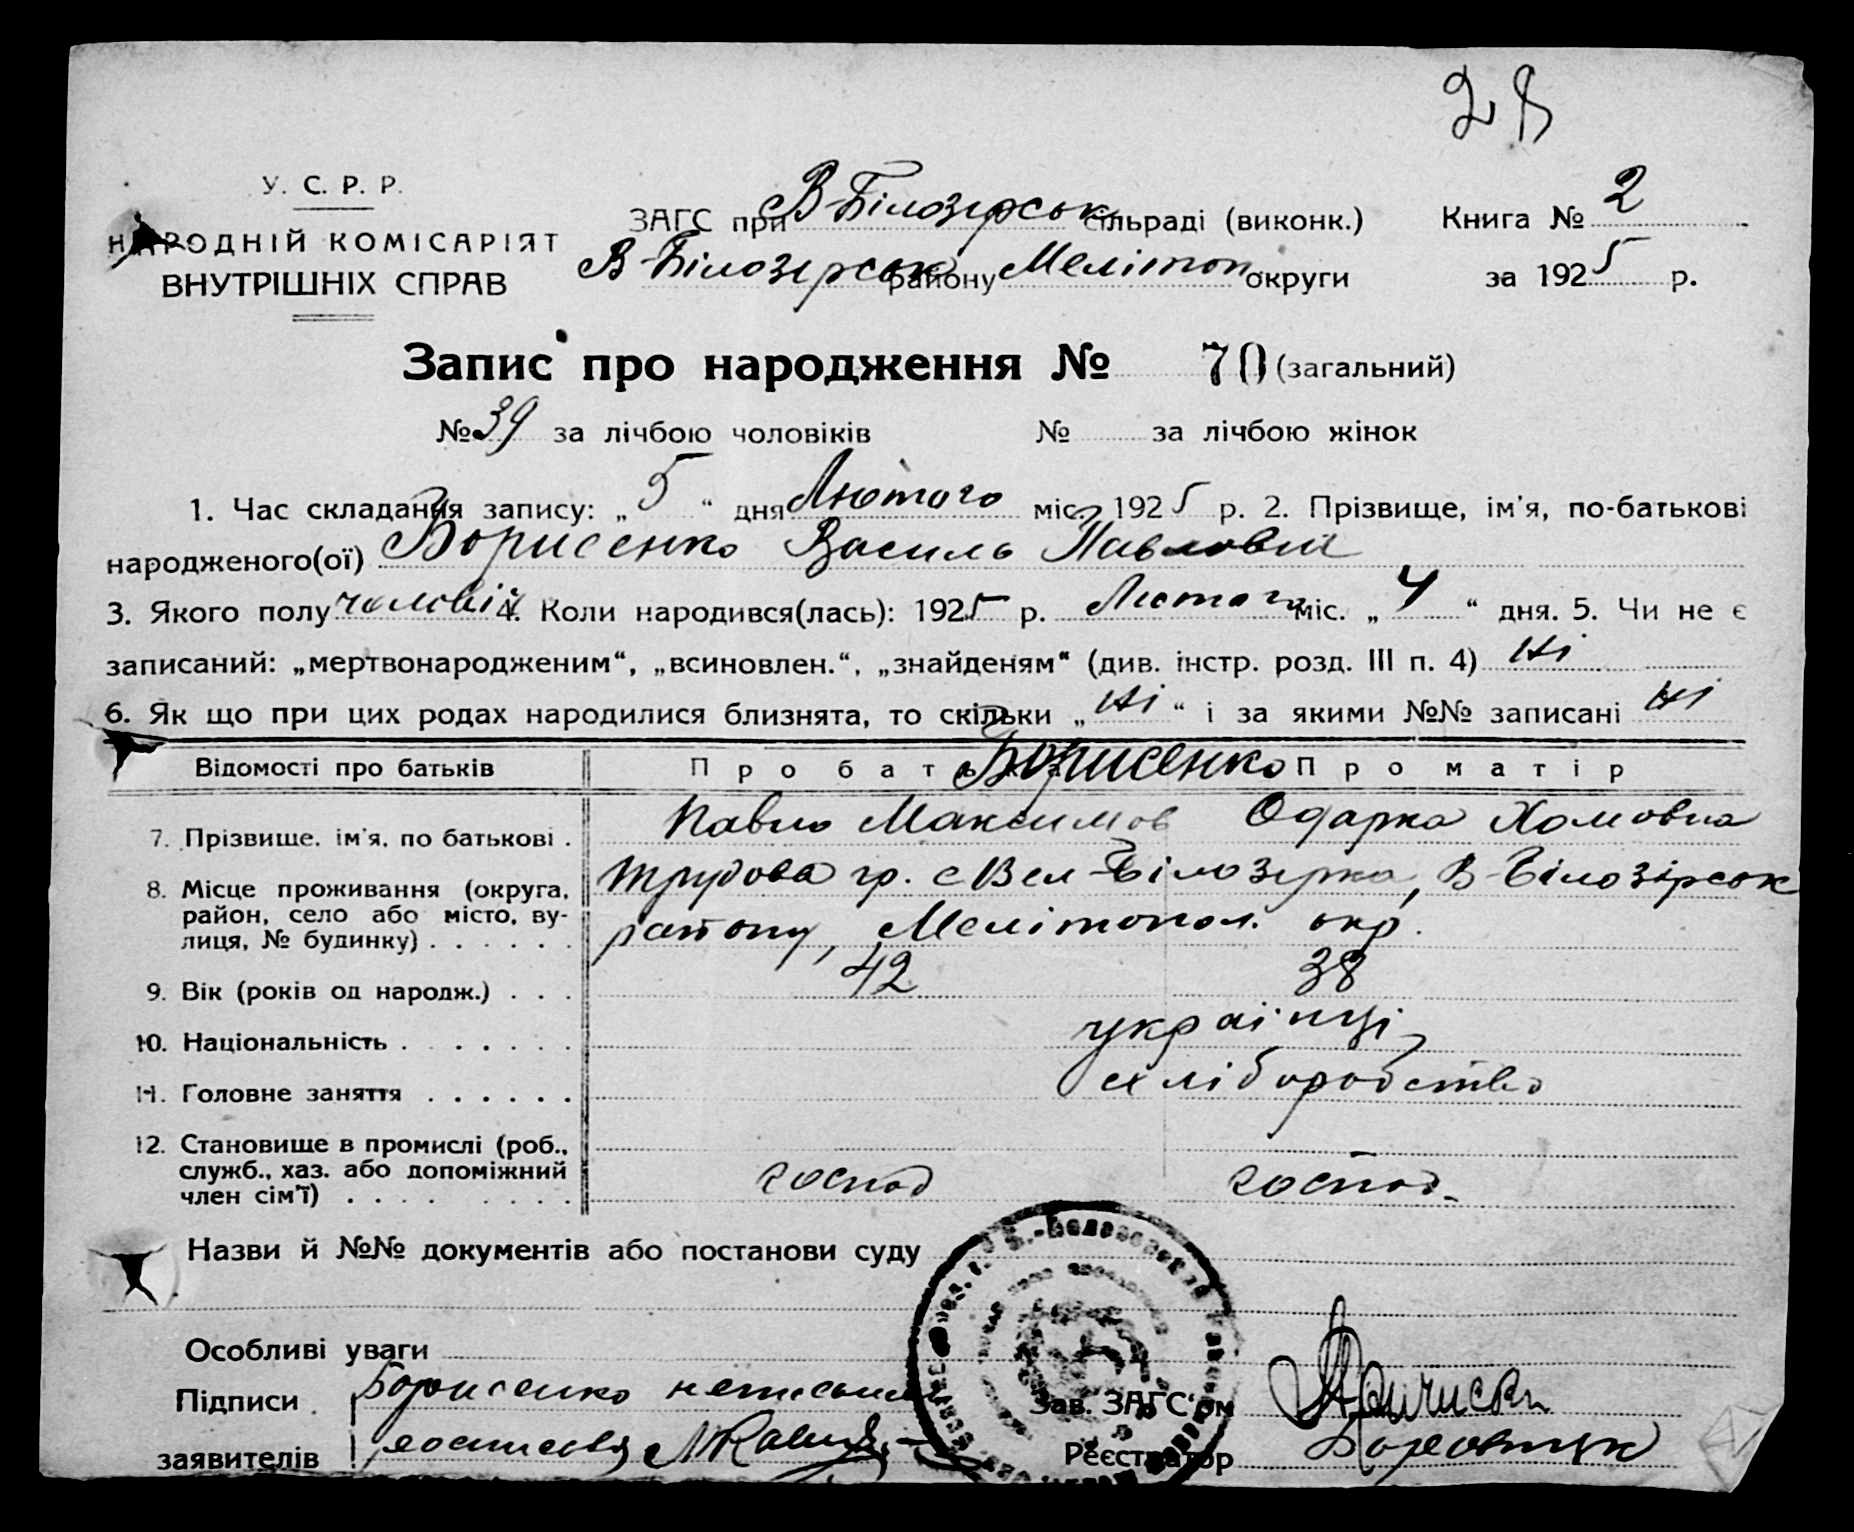 28
У. С. Р. Р.
НАРОДНІЙ КОМІСАРІЯТ
ВНУТРІШНІХ СПРАВ
ЗАГС при В-Білозерськ сільраді (виконк.) Книга № 2
В-Білозерськ району Мелітоп округи за 1925 р.
Запис про народження № 70 (загальний)
№ 39 за лічбою чоловіків № за лічбою жінок
1. Час складання запису: „5“ дня Лютого міс. 1925 р. 2. Прізвище, ім'я, по-батькові
народженого(ої) Борисенко Василь Павлович
3. Якого полу чоловіч 4. Коли народився(лась): 1925 р. Лютого міс. „4“ дня. 5. Чи не є
записаний: „мертвонародженим“, „всиновлен.“, „знайденям“ (див. інстр. розд. III п. 4) Ні
6. Як що при цих родах народилися близнята, то скільки „Ні“ і за якими №№ записані Ні
Відомості про батьків Про батька Борисенко Про матір
7. Прізвище, ім'я, по батькові . Павло Максимов Одарка Хомовна
8. Місце проживання (округа, район, село або місто, вулиця, № будинку) . . . . . . Трудова гр. с Вел-Білозерка, В-Білозірськ
району, Мелітопол. окр.
9. Вік (років од народж.) . . . 42 38
10. Національність . . . . . . . українці
11. Головне заняття . . . . . . хліборобство
12. Становище в промислі (роб.,
служб., хаз. або допоміжний
член сім'ї) . . . . . . . . господ господ.
Назви й №№ документів або постанови суду
Особливі уваги
Підписи Борисенко Зав. ЗАГС'ом
заявителів Реєстратор